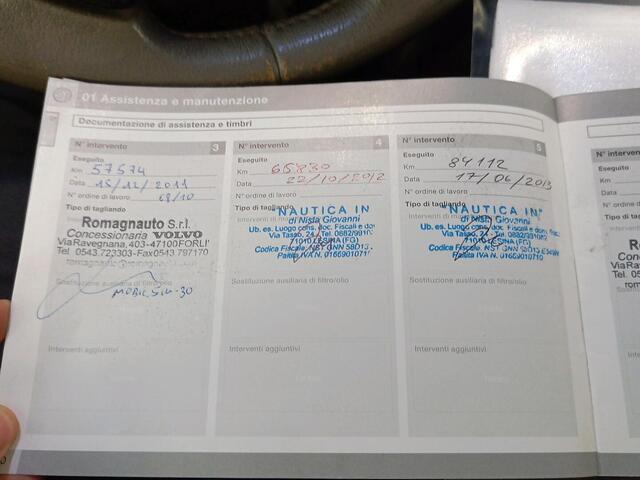 01 Assistenza e manutenzione
Documentazione di assistenza e timbri
N° intervento 3
Eseguito
Km 57574
Data 15/12/2011
N° ordine di lavoro 68/10
Tipo di tagliando
Romagnauto S.r.l.
Concessionaria VOLVO
Via Ravegnana, 403-47100 FORLI'
Tel. 0543.723303-Fax 0543 797170
Sostituzione ausiliaria di filtro/olio
MOBIL 5W-30
Interventi aggiuntivi
N° intervento 4
Eseguito
Km 65830
Data 22/10/2012
N° ordine di lavoro
Tipo di tagliando
"NAUTICA IN
di Nista Giovanni
Ub. es. Luogo cons. doc. Fiscali e
Via Tasso,
71010 LESINA (FG)
Codice Fiscale: NST GNN
Partita IVA N. 01669010710
Sostituzione ausiliaria di filtro/olio
Interventi aggiuntivi
N° intervento 5
Eseguito
Km 84112
Data 17/06/2013
N° ordine di lavoro
Tipo di tagliando
"NAUTICA IN"
di Nista Giovanni
Ub. es. Luogo cons. doc. Fiscali e
Via Tasso,
71010 LESINA (FG)
Codice Fiscale: NST GNN
Partita IVA N. 01669010710
Sostituzione ausiliaria di filtro/olio
Interventi aggiuntivi
N° intervento
Eseguito
Km
Data
N° ordine di
Tipo di tagl
Ro
Con
Via Rav
Tel. 05
rom
Sostituzi
Interve